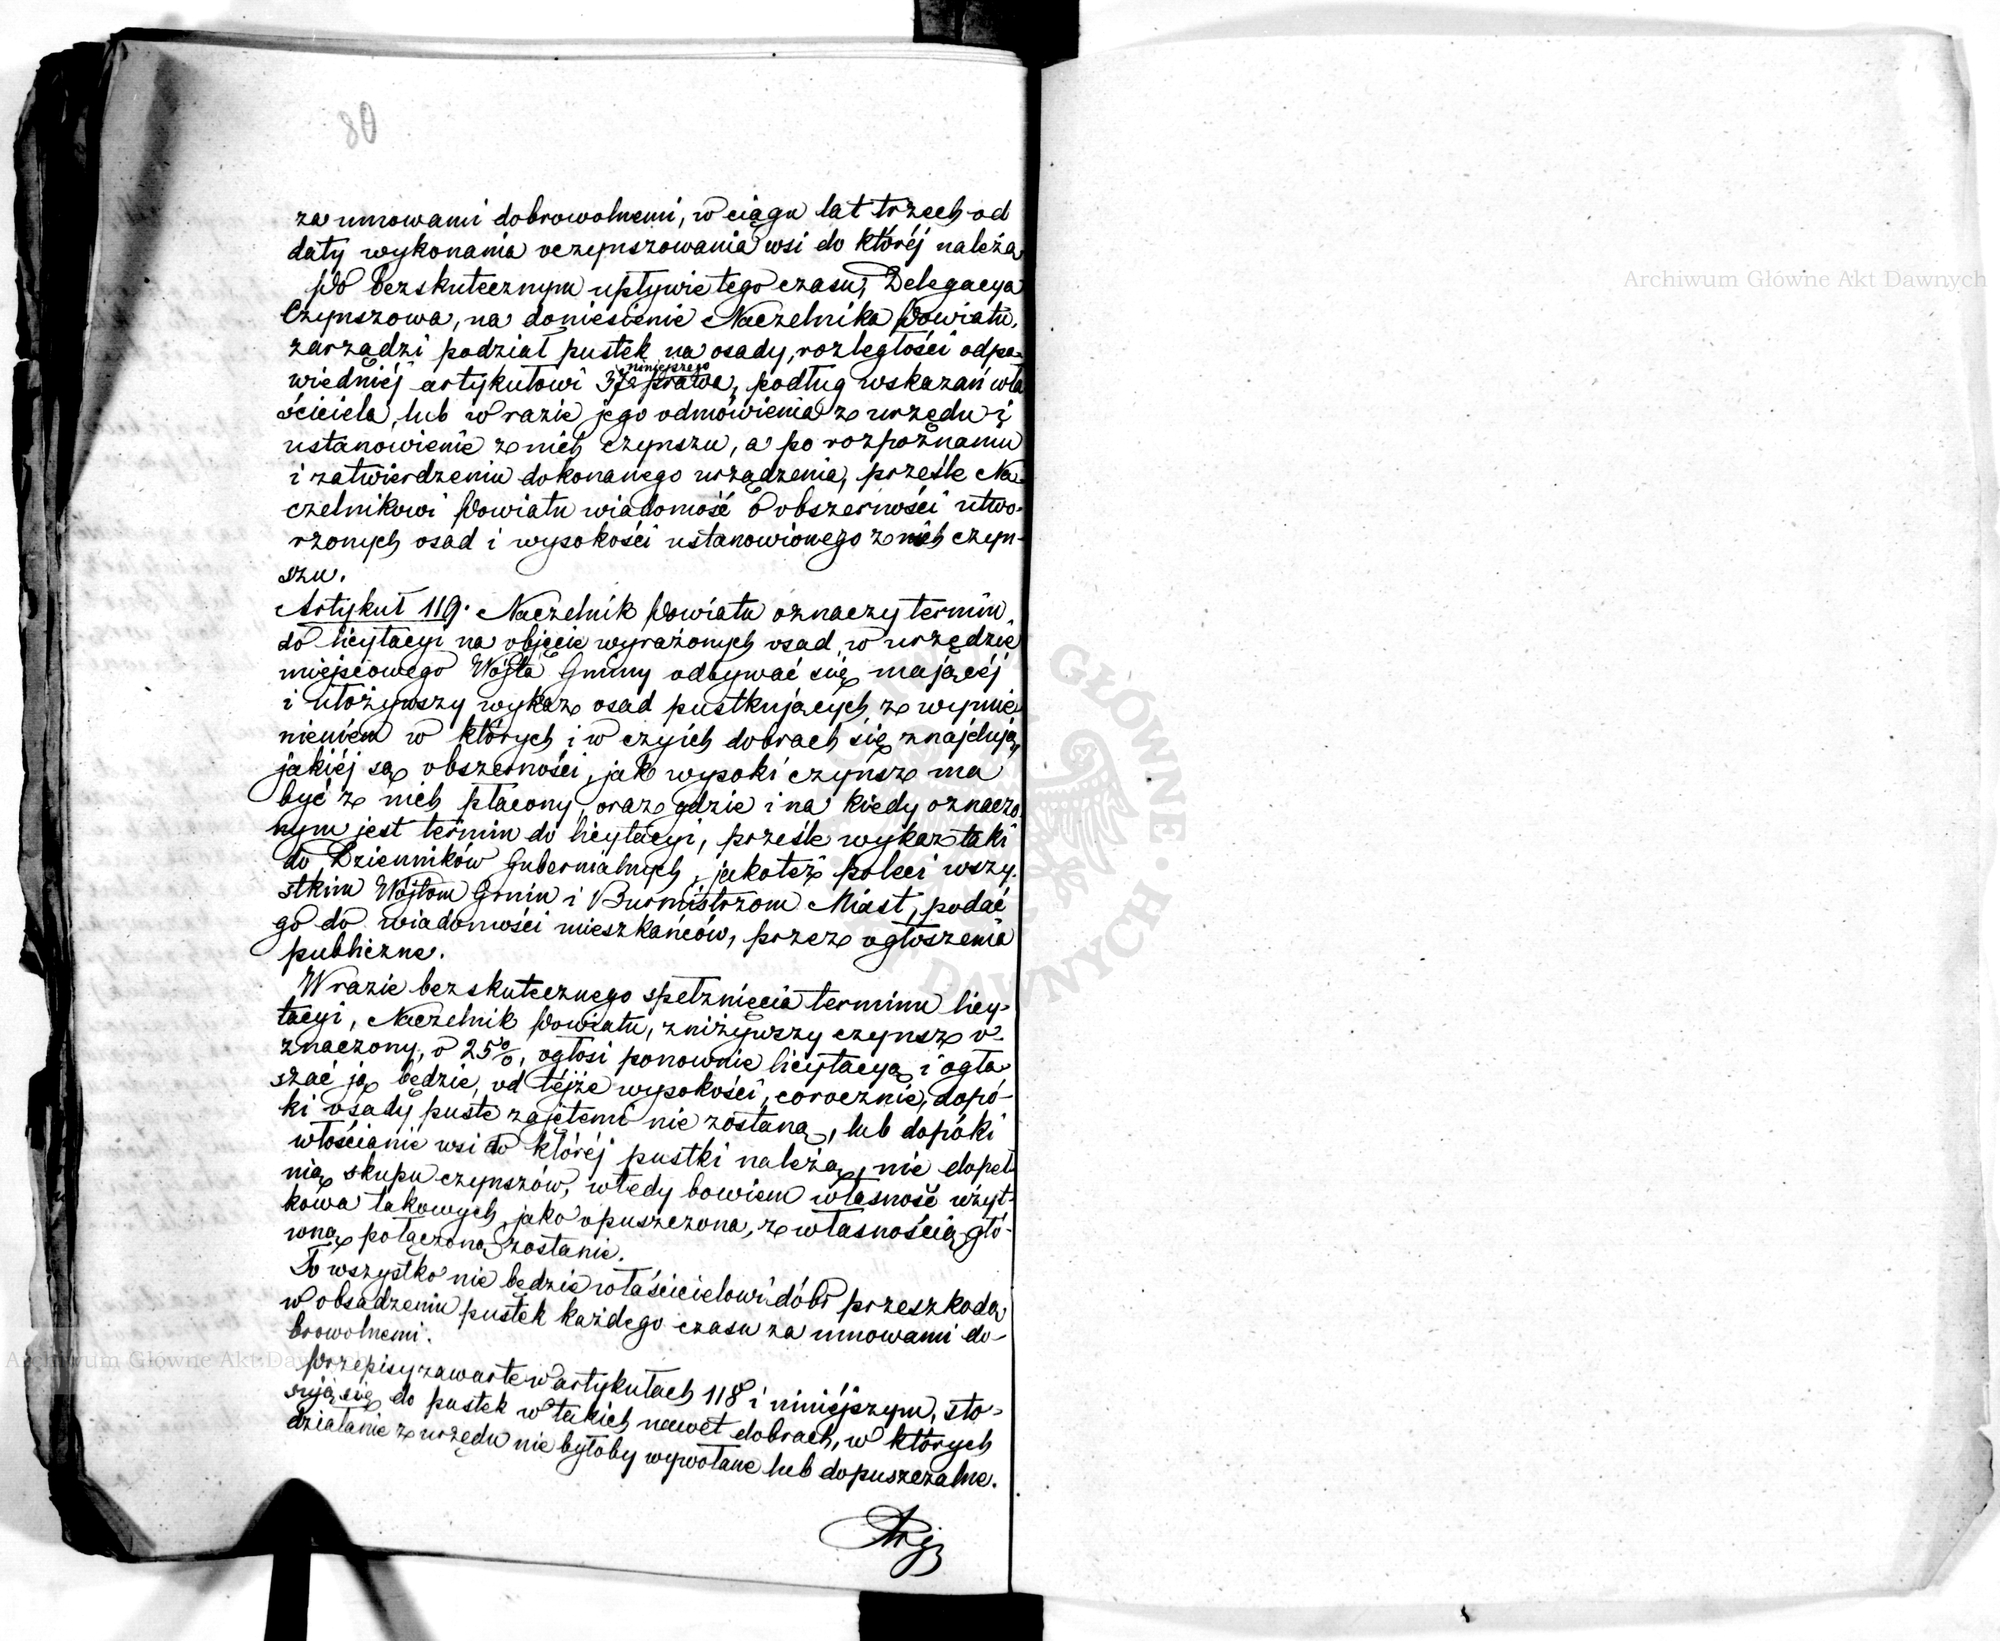 80
za umowami dobrowolnemi, w ciągu lat trzech od
daty wykonania oczynszowania wsi do któréj należą
Po bezskutecznym upływie tego czasu, Delegacya
Czynszowa, na doniesienie Naczelnika Powiatu,
zarządzi podział pustek na osady, rozległości odpo-
wiedniéj artykułowi 37 niniejszego prawa, podług wskazań wła
ściciela, lub w razie jego odmówienia z urzędu i
ustanowienie z nich czynszu, a po rozpoznaniu
i zatwierdzeniu dokonanego urządzenia, prześle Na-
czelnikowi Powiatu wiadomość o obszerności utwo-
rzonych osad i wysokości ustanowionego z nich czyn-
szu.
Artykuł 119. Naczelnik Powiatu oznaczy termin
do licytacyi na objęcie wyrażonych osad, w urzędzie
miejscowego Wójta Gminy odbywać się mającéj
i ułożywszy wykaz osad pustkujących, z wymie
nieniem w których i w czyich dobrach się znajdują,
jakiéj są obszerności, jak wysoki czynsz ma
być z nich płacony, oraz gdzie i na kiedy oznaczo
nym jest termin do licytacyi, prześle wykaz taki
do Dzienników Gubernialnych, jakoteż poleci wszy-
stkim Wójtom Gmin i Burmistrzom Miast, podać
go do wiadomości mieszkańców, przez ogłoszenia
publiczne.
W razie bezskutecznego spełznięcia terminu licy-
tacyi, Naczelnik Powiatu, zniżywszy czynsz o-
znaczony, o 25%, ogłosi ponownie licytacyą i ogła
szać ją będzie, od téjże wysokości, corocznie, dopó-
ki osady puste zajętemi nie zostaną, lub dopóki
włościanie wsi do któréj pustki należą, nie dopeł
nią skupu czynszów, wtedy bowiem własność użyt-
kowa takowych, jako opuszczona, z własnością głó-
wną połączoną zostanie.
To wszystko nie będzie właścicielowi dóbr przeszkodą
w obsadzeniu pustek każdego czasu za umowami do-
browolnemi.
Przepisy zawarte w artykułach 118 i niniéjszym, sto-
sują się do pustek w takich nawet dobrach, w których
działanie z urzędu nie byłoby wywołane lub dopuszczalne.
Archiwum Główne Akt Dawnych
Archiwum Główne Akt Dawnych
GŁÓWNE
DAWNYCH